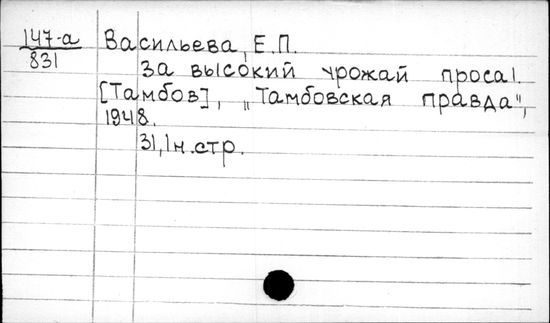 147-а Васильева, Е.П.
831
За высокий урожай проса!.
[Тамбов], „Тамбовская правда",
1948.
31, 1 н. стр.